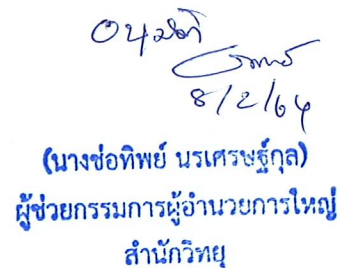 อนุมัติ
8/2/64
(นางช่อทิพย์ นรเศรษฐ์กุล)
ผู้ช่วยกรรมการผู้อำนวยการใหญ่
สำนักวิทยุ